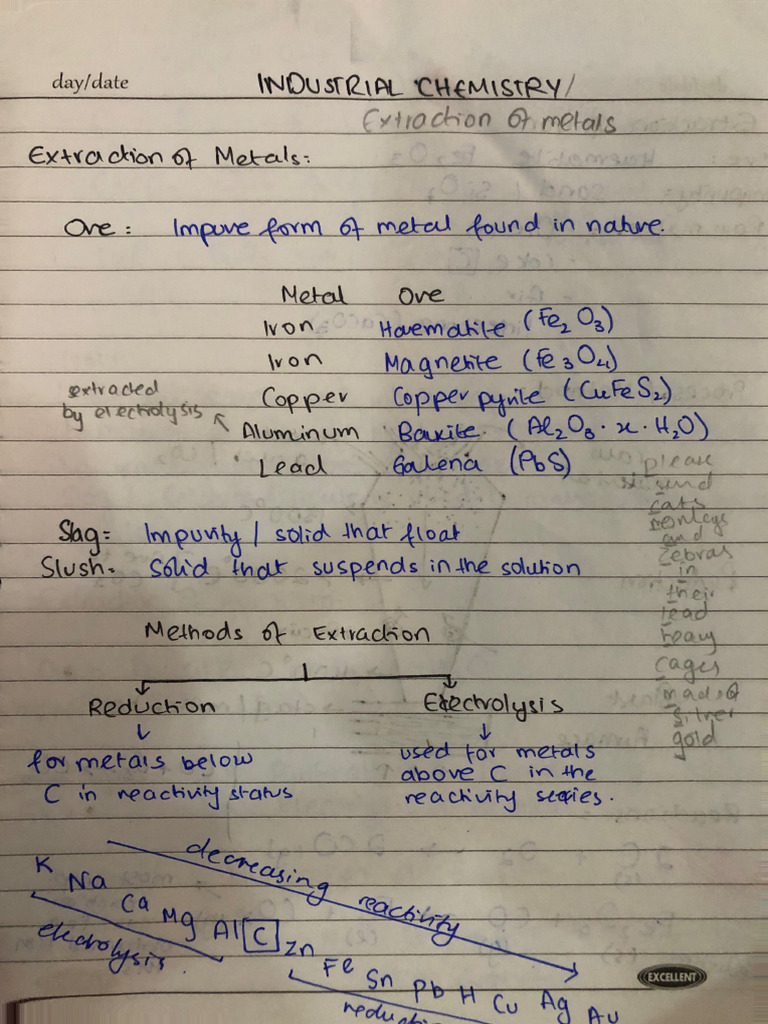 day/date
INDUSTRIAL CHEMISTRY/
Extraction of metals
Extraction of Metals:
Ore: Impure form of metal found in nature.
Metal Ore
Iron Haematite (Fe₂O₃)
Iron Magnetite (Fe₃O₄)
Copper Copper pyrite (CuFeS₂)
extracted
by electrolysis
Aluminum Bauxite (Al₂O₃·x·H₂O)
Lead Galena (PbS)
please
send
cats
monleys
and
zebras
in
their
lead
heavy
cages
made of
silver
gold
Slag= Impurity / solid that float
Slush= Solid that suspends in the solution
Methods of Extraction
Reduction
for metals below
C in reactivity status
Electrolysis
used for metals
above C in the
reactivity series.
decreasing reactivity
K Na Ca Mg Al C Zn Fe Sn Pb H Cu Ag Au
electrolysis
EXCELLENT